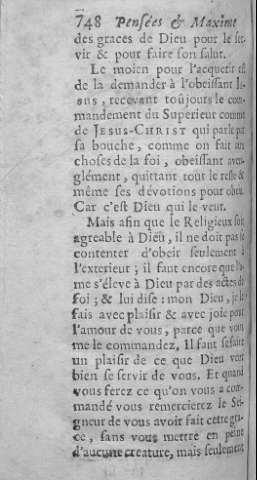 748 Pensées & Maxime
des graces de Dieu pour le ser-
vir & pour faire son salut.
Le moien pour l'acquerir est
de la demander à l'obeïssant Je-
sus, recevant toûjours le com-
mandement du Superieur comme
de JESUS-CHRIST qui parle par
sa bouche, comme on fait aux
choses de la foi, obeïssant aveu-
glément, quittant tout le reste &
même ses dévotions pour obeïr.
Car c'est Dieu qui le veut.
Mais afin que le Religieux soit
agreable à Dieu, il ne doit pas se
contenter d'obeir seulement à
l'exterieur; il faut encore que l'a-
me s'éleve à Dieu par des actes de
foi; & lui dise: mon Dieu, je le
fais avec plaisir & avec joie pour
l'amour de vous, parce que vous
me le commandez. Il faut se faire
un plaisir de ce que Dieu veut
bien se servir de vous. Et quand
vous ferez ce qu'on vous a com-
mandé vous remercierez le Sei-
gneur de vous avoir fait cette gra-
ce, sans vous mettre en peine
d'aucune creature, mais seulement